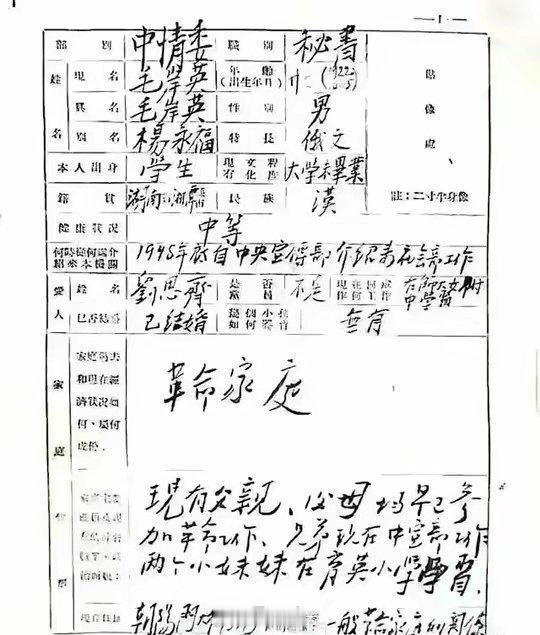 —1—
部別 中情委 職別 秘書 貼像處
姓名 現名 毛岸英 年齡(出生年月) 廿七(1922
眞名 毛岸英 性別 男
別名 楊永福 特長 俄文
本人出身 學生 現有文化程度 大學未畢業
籍貫 湖南湘潭 民族 漢 註:二寸半身像
健康狀況 中等
何時從何處介紹來本機關 1948年 自中央宣傳部介紹來社會部工作
愛人 姓名 劉思齊 是否黨員 不是 現在何處作何工作 在師大女附中學習
已否結婚 已結婚 幾個小孩如何養育 無育
家庭情形 家庭過去和現在經濟狀況如何,屬何成份 革命家庭
現有父親、父母均早已參
加革命工作、兄弟現在中宣部工作
兩个小妹妹在育英小學學習.
現在住址 朝陽門 一般革命家庭的關係